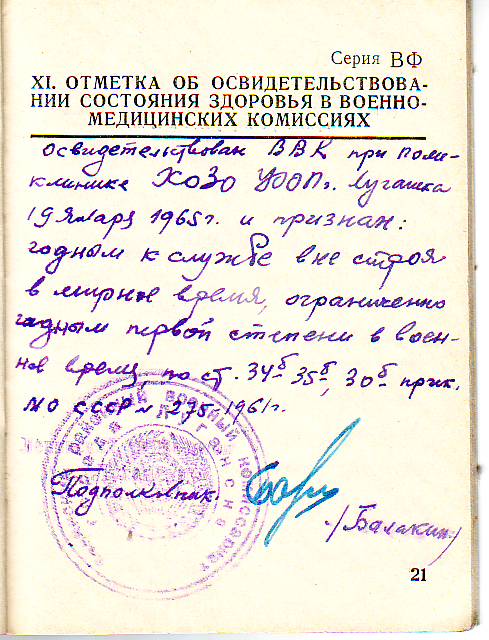 Серия ВФ
XI. ОТМЕТКА ОБ ОСВИДЕТЕЛЬСТВОВА-
НИИ СОСТОЯНИЯ ЗДОРОВЬЯ В ВОЕННО-
МЕДИЦИНСКИХ КОМИССИЯХ
Освидетельствован ВВК при поли-
клинике ХОЗО УООП г. Луганска
19 Января 1965 г. и признан:
годным к службе вне строя
в мирное время, ограниченно
годным первой степени в воен-
ное время, по ст. 34б 35б, 30б прик.
МО СССР № 275 1961 г.
районный военный комиссариат
Луганска
Подполковник.
/Балакин/
21